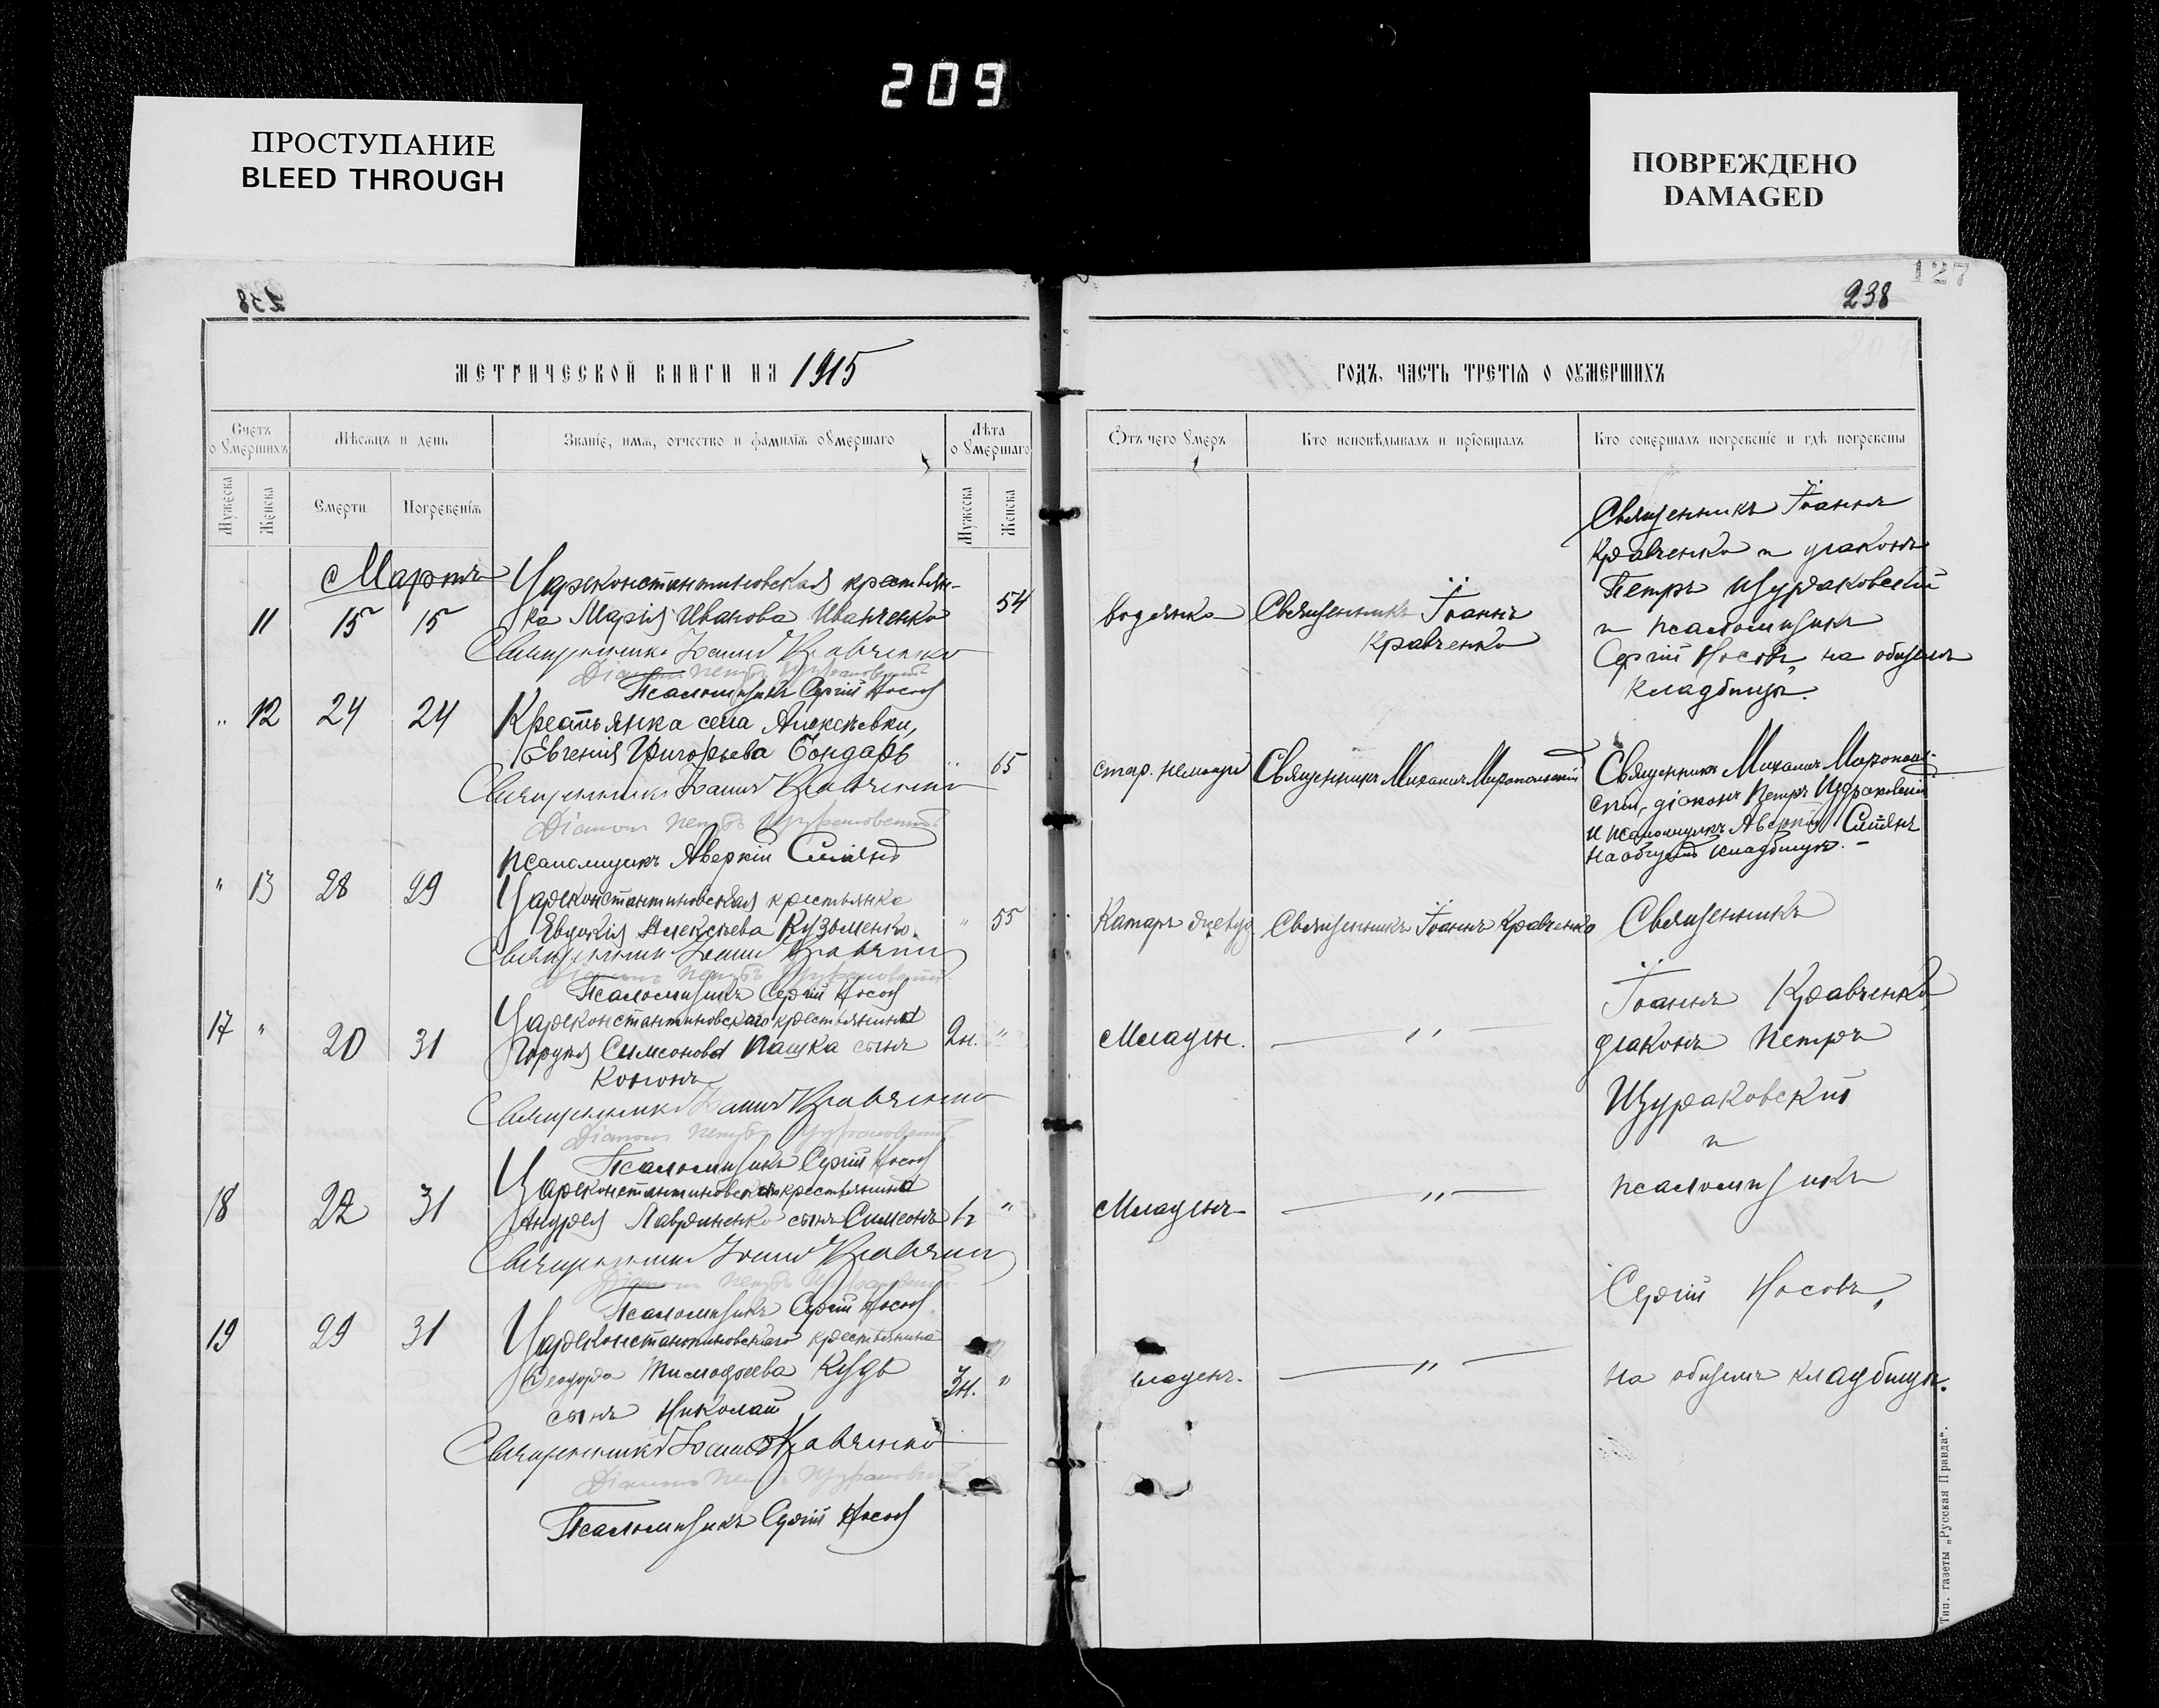 209
ПРОСТУПАНИЕ
BLEED THROUGH
ПОВРЕЖДЕНО
DAMAGED
127
238
метрической книги на 1915
Счетъ о умершихъ
Мѣсяцъ и день
Званіе, имя, отчество и фамилія умершаго
Лѣта умершаго
Мужеска
Женска
Смерти
Погребенія
Мужеска
Женска
Мартъ
Цареконстантиновская крестьян-
11 15 15 ка Марія Иванова Иванченко 54
Священникъ Іоаннъ Кравченко
Діаконъ Петръ Щураковскій
Псаломщикъ Сергій Носовъ
" 12 24 24 Крестьянка села Алексѣевки,
Евгенія Григорьева Бондарь 65
Священникъ Іоаннъ Кравченко
Діаконъ Петръ Щураковскій
псаломщикъ Аверкій
" 13 28 29 Цареконстантиновская крестьянка
Евдокія Алексѣева Кузьменко. " 55
Священникъ Іоаннъ Кравченко
Діаконъ Петръ Щураковскій
Псаломщикъ Сергій Носовъ
17 " 20 31 Цареконстантиновскаго крестьянина
Симеонова Пашка сынъ 2н. "
Кононъ
Священникъ Іоаннъ Кравченко
Діаконъ Петръ Щураковскій
Псаломщикъ Сергій Носовъ
18 22 31 Цареконстантиновскаго крестьянина
Андрея Лавриненко сынъ Симеонъ ½ "
Священникъ Іоаннъ Кравченко
Діаконъ Петръ Щураковскій
Псаломщикъ Сергій Носовъ
19 29 31 Цареконстантиновскаго крестьянина
Ѳеодора Тимофеева
сынъ Николай 3н. "
Священникъ Іоаннъ Кравченко
Діаконъ Петръ Щураковскій
Псаломщикъ Сергій Носовъ
годъ, часть третія о умершихъ
Отъ чего умеръ
Кто исповѣдывалъ и пріобщалъ
Кто совершалъ погребеніе и гдѣ погребены
водянка
Священникъ Іоаннъ
Кравченко
Священникъ Іоаннъ
Кравченко и діаконъ
Петръ Щураковскій
и псаломщикъ
Сергій Носовъ, на общемъ
кладбищѣ.
стар. немощи
Священникъ Михаилъ Миропольскій
Священникъ Михаилъ Миропольскій
діаконъ Петръ Щураковскій
и псаломщикъ Аверкій
на общемъ кладбищѣ.
Катаръ желуд.
Священникъ Іоаннъ Кравченко
Священникъ
Іоаннъ Кравченко,
діаконъ Петръ
Щураковскій
и
псаломщикъ
Сергій Носовъ,
на общемъ кладбищѣ.
Младен. "
Младенч. "
младенч. "
Тип. газеты „Русская Правда“.